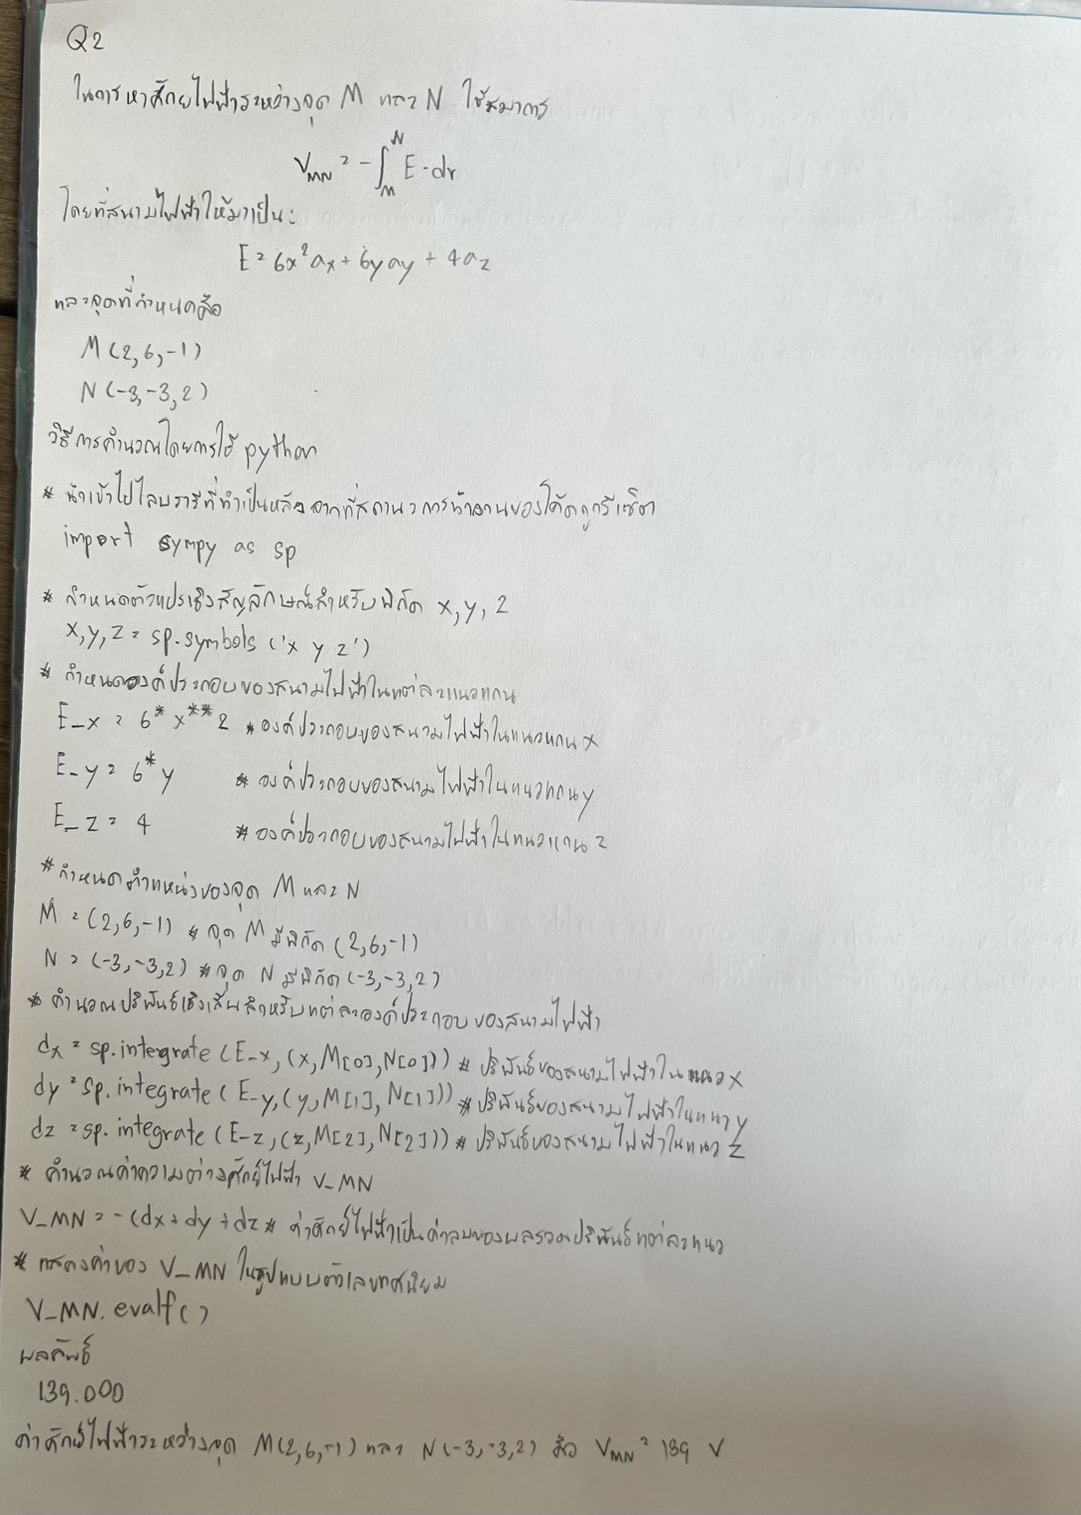 Q2
ในการหาศักย์ไฟฟ้าระหว่างจุด M และ N ใช้สมาการ
V_MN = -∫_M^N E·dr
โดยที่สนามไฟฟ้าให้มาเป็น:
E = 6x²ax + 6yay + 4az
และจุดที่กำหนดคือ
M (2,6,-1)
N (-3,-3,2)
วิธีการคำนวณโดยการใช้ python
* นำเข้าไปไลบรารีที่จำเป็นหลังจากที่สถานะการทำงานของโค้ดถูกรีเซ็ต
import sympy as sp
* กำหนดตัวแปรเชิงสัญลักษณ์สำหรับพิกัด x,y,z
x,y,z = sp.symbols ('x y z')
* กำหนดองค์ประกอบของสนามไฟฟ้าในแต่ละแนวแกน
E_x = 6*x**2 * องค์ประกอบของสนามไฟฟ้าในแนวแกน x
E_y = 6*y # องค์ประกอบของสนามไฟฟ้าในแนวแกน y
E_z = 4 # องค์ประกอบของสนามไฟฟ้าในแนวแกน z
*กำหนดตำแหน่งของจุด M และ N
M = (2,6,-1) # จุด M มีพิกัด (2,6,-1)
N = (-3,-3,2) # จุด N มีพิกัด (-3,-3,2)
* คำนวณปริพันธ์เชิงเส้นสำหรับแต่ละองค์ประกอบของสนามไฟฟ้า
dx = sp.intergrate (E_x, (x, M[0], N[0])) # ปริพันธ์ของสนามไฟฟ้าในแนว x
dy = sp.integrate (E_y, (y, M[1], N[1])) # ปริพันธ์ของสนามไฟฟ้าในแนว y
dz = sp.integrate (E_z, (z, M[2], N[2])) # ปริพันธ์ของสนามไฟฟ้าในแนว z
* คำนวณค่าความต่างศักย์ไฟฟ้า V_MN
V_MN = -(dx+dy+dz # ค่าศักย์ไฟฟ้าเป็นค่าลบของผลรวมปริพันธ์แต่ละแนว
* แสดงค่าของ V_MN ในรูปแบบตัวเลขทศนิยม
V_MN.evalf()
ผลลัพธ์
139.000
ค่าศักย์ไฟฟ้าระหว่างจุด M(2,6,-1) และ N(-3,-3,2) คือ V_MN = 139 V